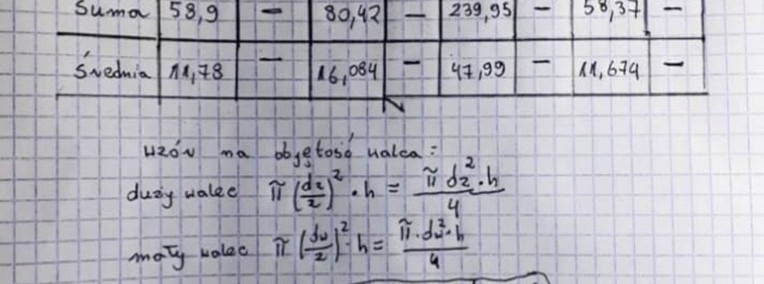 Suma 58,9 — 80,42 — 239,95 — 58,37 —
Średnia 11,78 — 16,084 — 47,99 — 11,674 —
wzór na objętość walca:
duży walec π (dz/2)² · h = π dz² · h / 4
mały walec π (dw/2)² · h = π · dw² · h / 4